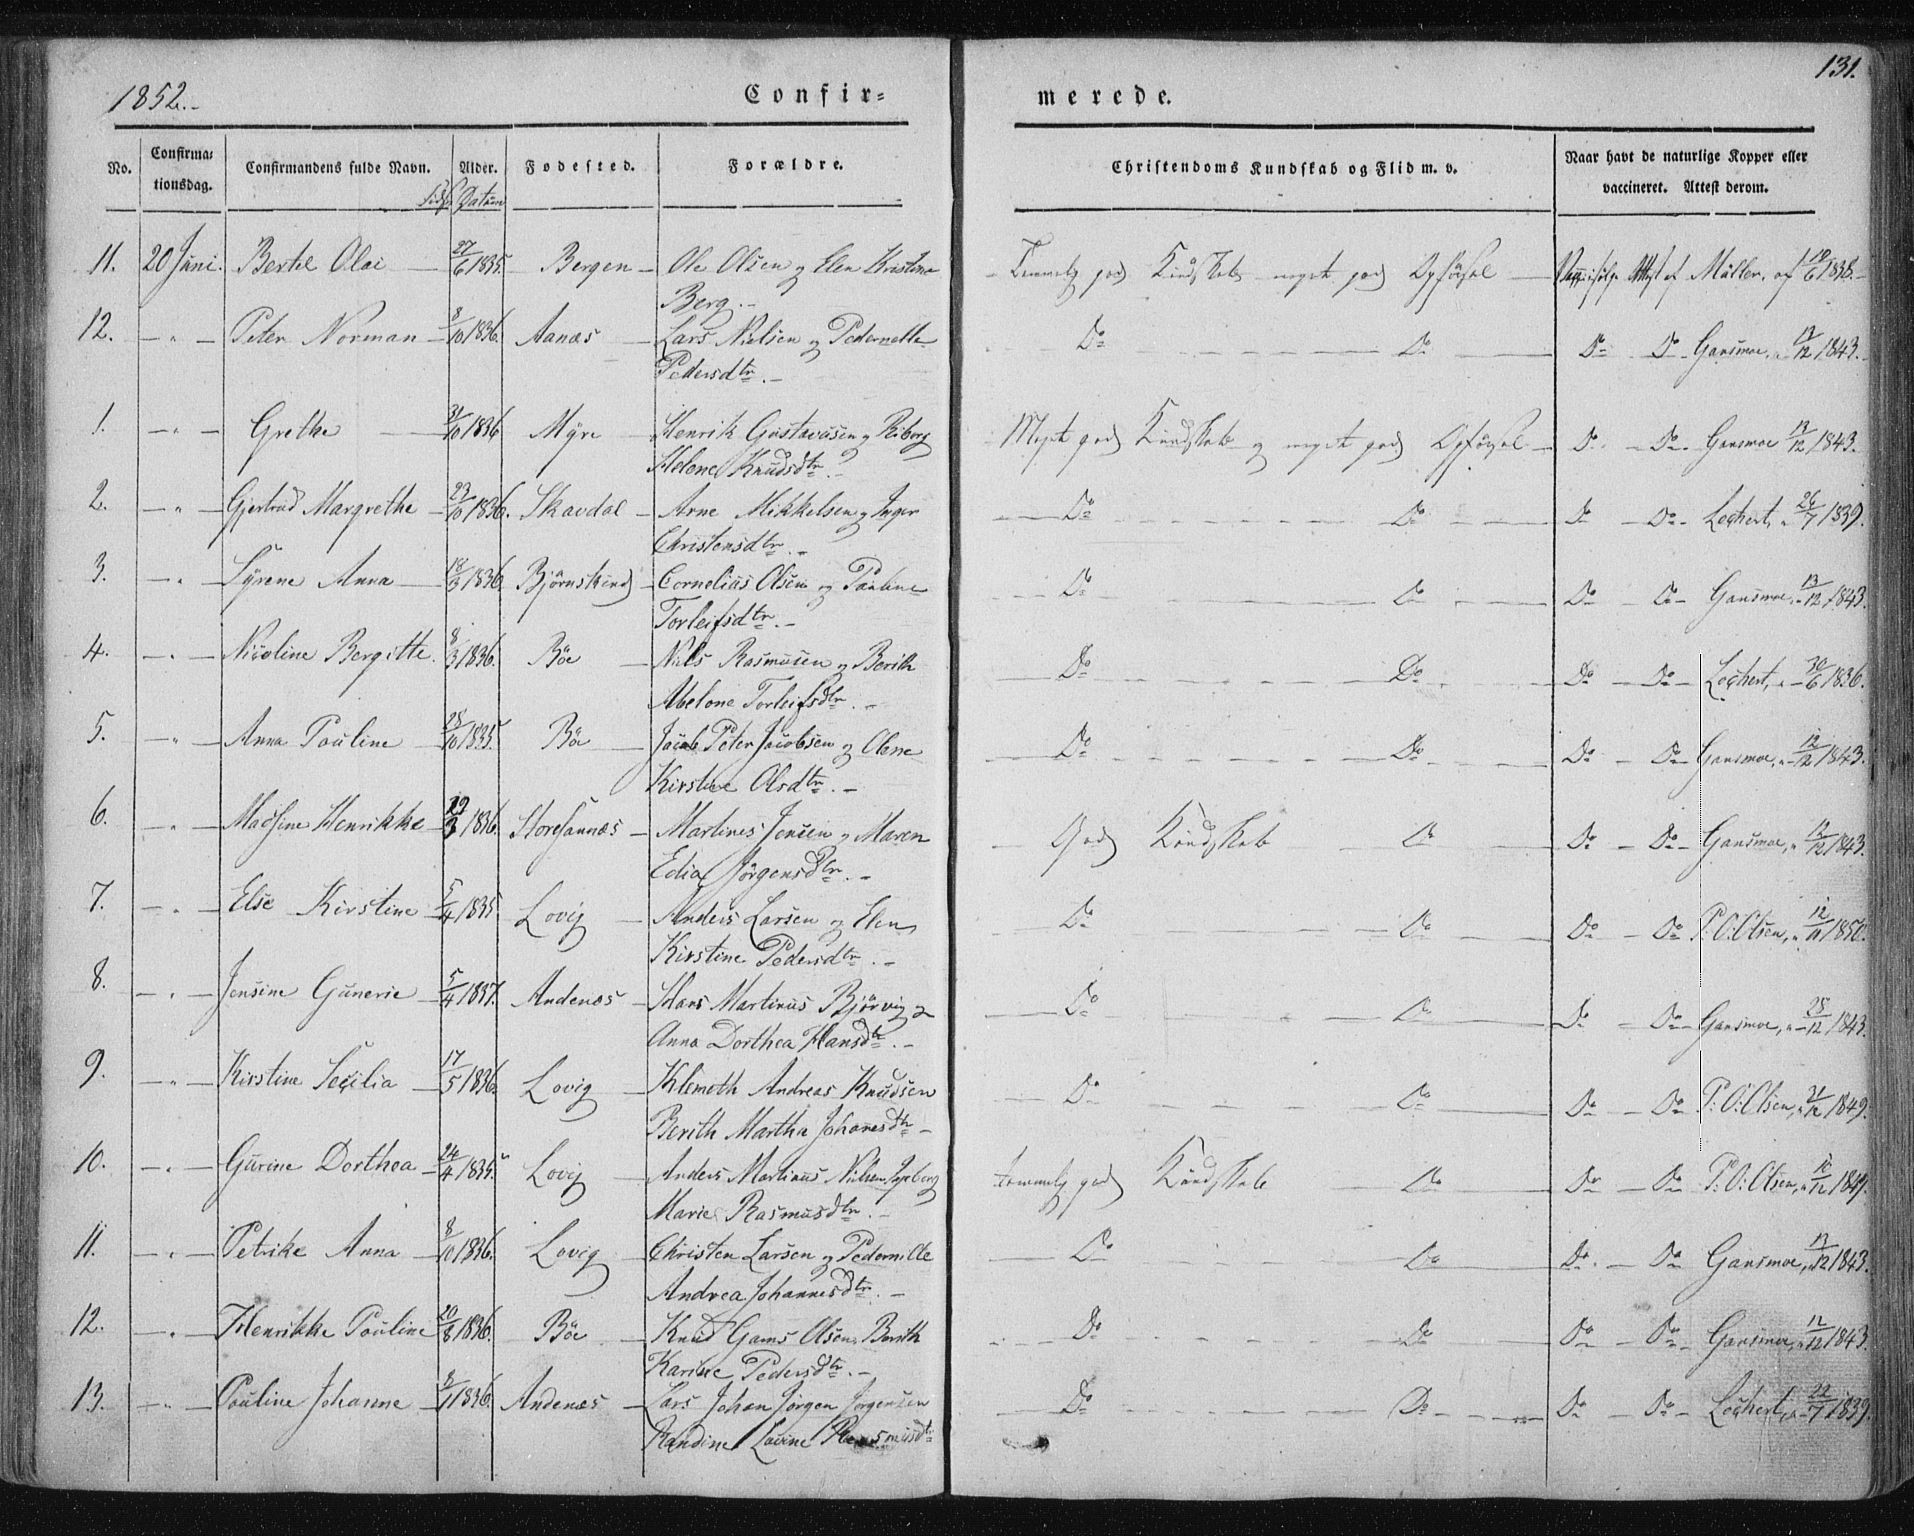 1852.-
Confir-
merede.
131.
No.
Confirma-
tionsdag.
Confirmandens fulde Navn.
Alder.
Datum
Fødested.
Forældre.
Christendoms Kundskab og Flid m. v.
Naar havt de naturlige Kopper eller
vaccineret. Attest derom.
11. 20 Juni. Bertel Olai 27/6 1835. Bergen Ole Olsen og Elen Kristine Temmelig god Kundskab meget god Opførsel Attest af Müller, af 18/6 1838.
Berg.
12. " Peter Norman 8/10 1836. Aanæs Lars Nielsen og Pedernelle Do Do Do Do Gansmoe, " 12/12 1843.
Pedersdtr.
1. " Grethe 31/10 1836 Myre Henrik Gustavusen og Riborg Meget god Kundskab og meget god Opførsel Do Do Gansmoe 13/12 1843.
Helene Knudsdtr.
2. " Gjertrud Margrethe 23/10 1836. Skavdal Arne Mikkelsen og Inger Do Do Do Do Lochert, " 26/7 1839.
Christensdtr.
3. " Syrene Anna 18/3 1836 Bjørnskind Cornelius Olsen og Pauline Do Do Do Do Gansmoe, " 13/12 1843.
Torleifsdtr.
4. " Nicoline Bergitte. 8/3 1836. Böe Niels Rasmusen og Berith Do Do Do Do Lochert, " 30/6 1836.
Abelone Torleifsdtr.
5. " Anna Pauline 28/10 1835. Böe Jacob Peter Jacobsen og Olene Do Do Do Do Gansmoe, " 12/12 1843.
Kirstine Olsdtr.
6. " Madsine Henrikke 29/3 1836. Storesannæs Martines Jensen og Maren God Kundskab Do Do Do Gansmoe, " 12/12 1843.
Edia Jørgensdtr.
7. " Else Kirstine 5/4 1835 Lovig Anders Larsen og Elen Do Do Do Do P: O: Olsen, " 12/11 1850.
Kirstine Pedersdtr.
8. " Jensine Gunerie 5/4 1837. Andenæs Hans Martinus Bjørvig og Do Do Do Do Gansmoe, " 28/12 1843.
Anna Dorthea Hansdtr.
9. " Kirstine Secilia 17/5 1836. Lovig Klemeth Andreas Knudsen Do Do Do Do P: O: Olsen, " 21/12 1849.
Berith Martha Johanesdtr
10. " Gurine Dorthea 24/4 1835. Lovig Anders Martinus Nielsen, Ingeborg temmelig god Kundskab Do Do Do P: O: Olsen, " 10/12 1849.
Marie Rasmusdtr.
11. " Petrike Anna 8/10 1836. Lovig Christen Larsen og Pedernille Do Do Do Do Gansmoe, " 13/12 1843.
Andrea Johannesdtr.
12. " Henrikke Pauline 20/8 1836. Böe Knud Gams Olsen Berith Do Do Do Do Gansmoe, " 12/12 1843.
Karine Pedersdtr.
13. " Pauline Johanne 8/1 1836. Andenæs Lars Johan Jørgen Jørgensen Do Do Do Do Lochert, " 22/7 1839.
Randine Lovine Rasmusdtr